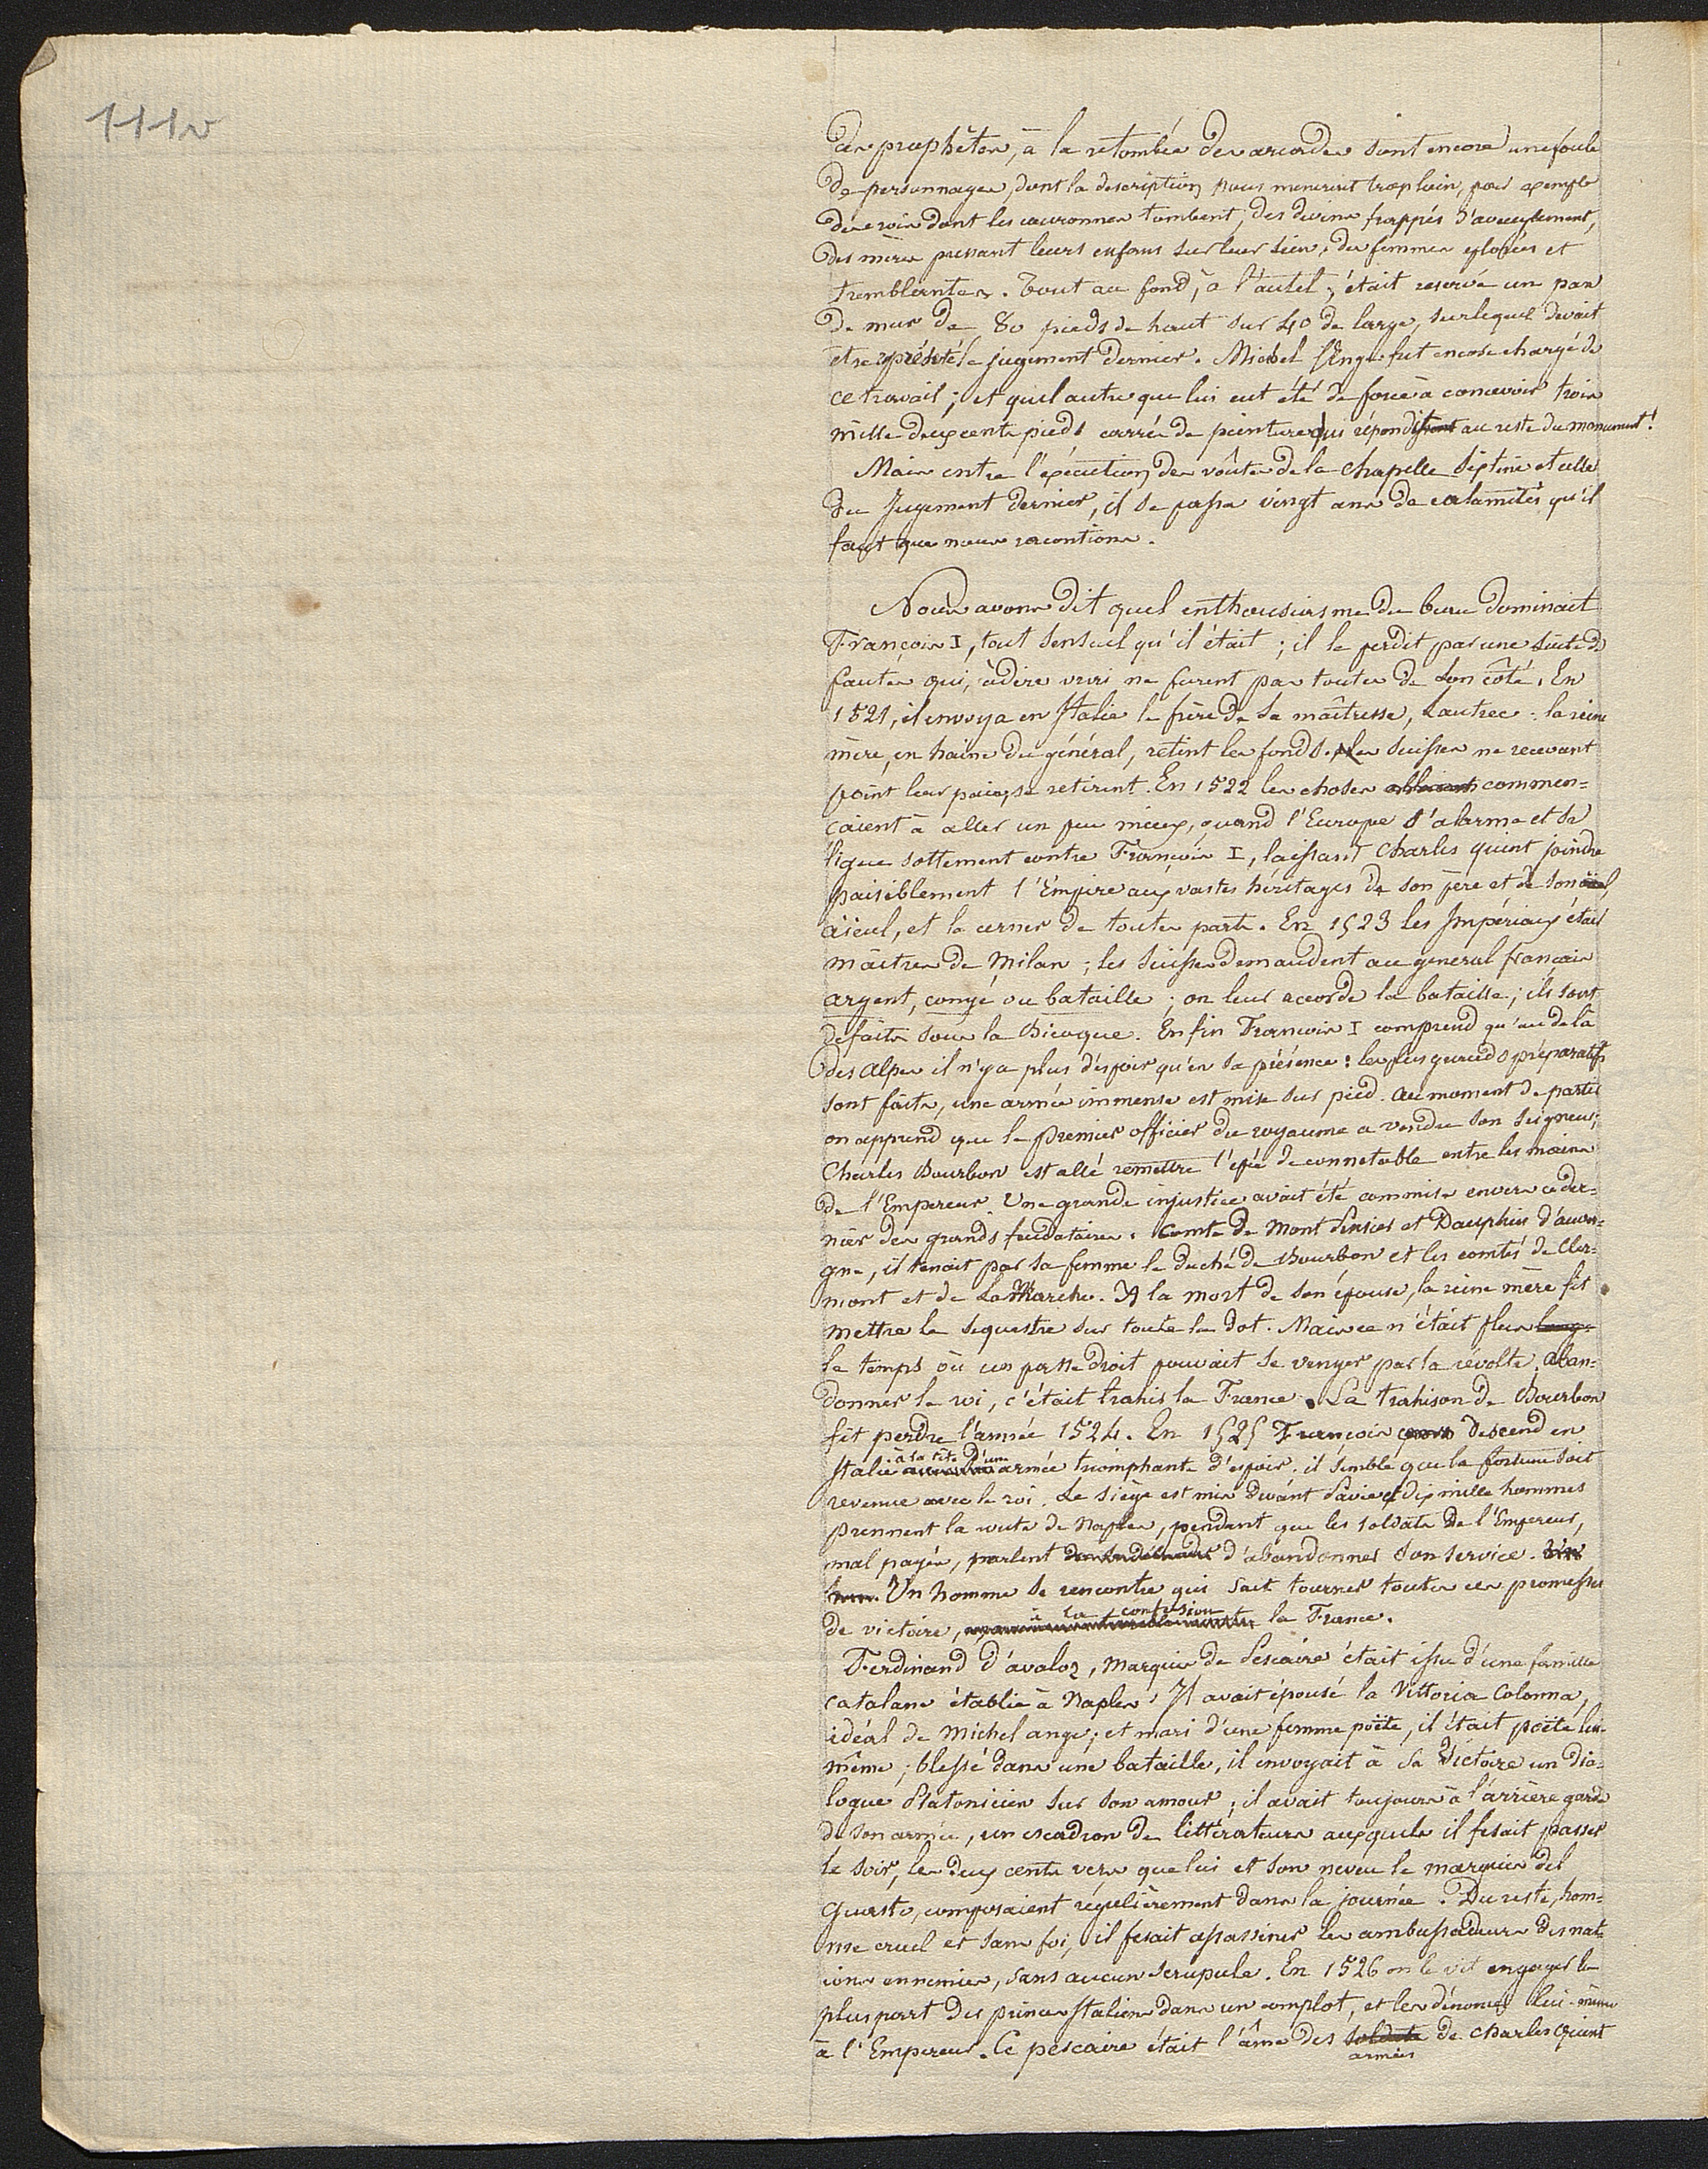 111v
des prophêtes, à la retombée des arcades sont encore une foule
de personnages, dont la description nous menerait trop loin, par exemple
des rois dont les couronnes tombent, des devins frappés d'aveuglement,
des mères pressant leurs enfans sur leur sein, des femmes éplorées et
tremblantes. Tout au fond, à l'autel, était reservé un pan
de mur de 80 pieds de haut sur 40 de large, sur lequel devait
etre représenté le jugement dernier. Michel Ange fut encore chargé de
ce travail; et quel autre que lui eut été de force à concevoir trois
mille deux cents pieds carrés de peintures qui répondissent au reste du monument!
Mais entre l'exécution des voûtes de la chapelle Sixtine et celle
du Jugement dernier, il se passa vingt ans de calamités qu'il
faut que nous racontions.
Nous avons dit quel enthousiasme du beau dominait
François I, tout sensuel qu'il était; il le perdit par une suite de
fautes qui, à dire vrai ne furent pas toutes de son côté. En
1521, il envoya en Italie le frère de sa maîtresse, Lautrec: la reine
mère, en haine du général, retint les fonds. les Suisses ne recevant
point leur paie, se retirent. En 1522 les choses allaient commen=
çaient à aller un peu mieux, quand l'Europe s'alarme et se
ligue sottement contre François I, laissant Charles quint joindre
paisiblement l'Empire aux vastes héritages de son père et de son
aïeul, et le cerner de toutes parts. En 1523 les Impériaux était
maîtres de Milan; les Suisses demandent au general français
argent, congé ou bataille; on leur accorde la bataille; ils sont
défaits sous la Bicoque. Enfin François I comprend qu'au delà
des Alpes il n'y a plus d'espoir qu'en sa présence: les plus grands préparatifs
sont faits, une armée immense est mise sur pied. Au moment de partir
on apprend que le premier officier du royaume a vendu son seigneur;
Charles Bourbon est allé remettre l'épée de connetable entre les mains
de l'Empereur. Une grande injustice avait été commise envers ce der=
nier des grands feudataires. Comte de Montpensier et Dauphin d'auver=
gne, il tenait par sa femme le duché de Bourbon et les comtés de Cler=
mont et de La Marche. A la mort de son épouse, la reine mère fit
mettre le sequestre sur toute la dot. Mais ce n'était plus
le temps où un passe droit pouvait se venger par la révolte, aban=
donner le roi, c'était trahir la France. La trahison de Bourbon
fit perdre l'année 1524. En 1525 François descend en
Italie à la tête d'une armée triomphante d'espoir. il semble que la fortune soit
revenue avec le roi. Le siège est mis devant Pavie et dix mille hommes
prennent la route de Naples, pendant que les soldats de l'Empereur,
mal payés, parlent d'abandonner son service.
Un homme se rencontre qui sait tourner toutes ces promesses
de victoire, à la confusion la France.
Ferdinand d'avalos, marquis de Pescaire était issu d'une famille
catalane établie à Naples. Il avait épousé la Vittoria Colonna,
idéal de Michel ange; et mari d'une femme poëte, il était poëte lui-
même; blessé dans une bataille, il envoyait à sa Victoire un dia=
logue Platonicien sur son amour; il avait toujours à l'arrière garde
de son armée, un escadron de littérateurs auxquels il fesait passer
le soir, les deux cents vers que lui et son neveu le marquis del
Guasto, composaient régulièrement dans la journée. Du reste, hom=
me cruel et sans foi, il fesait assassiner les ambassadeurs des nat=
ions ennemies, sans aucun scrupule. En 1526 on le vit engager la
plus part des princes Italiens dans un complot, et les dénoncer lui-même
à l'Empereur. Ce pescaire était l'âme des soldats de Charles Quint
armées